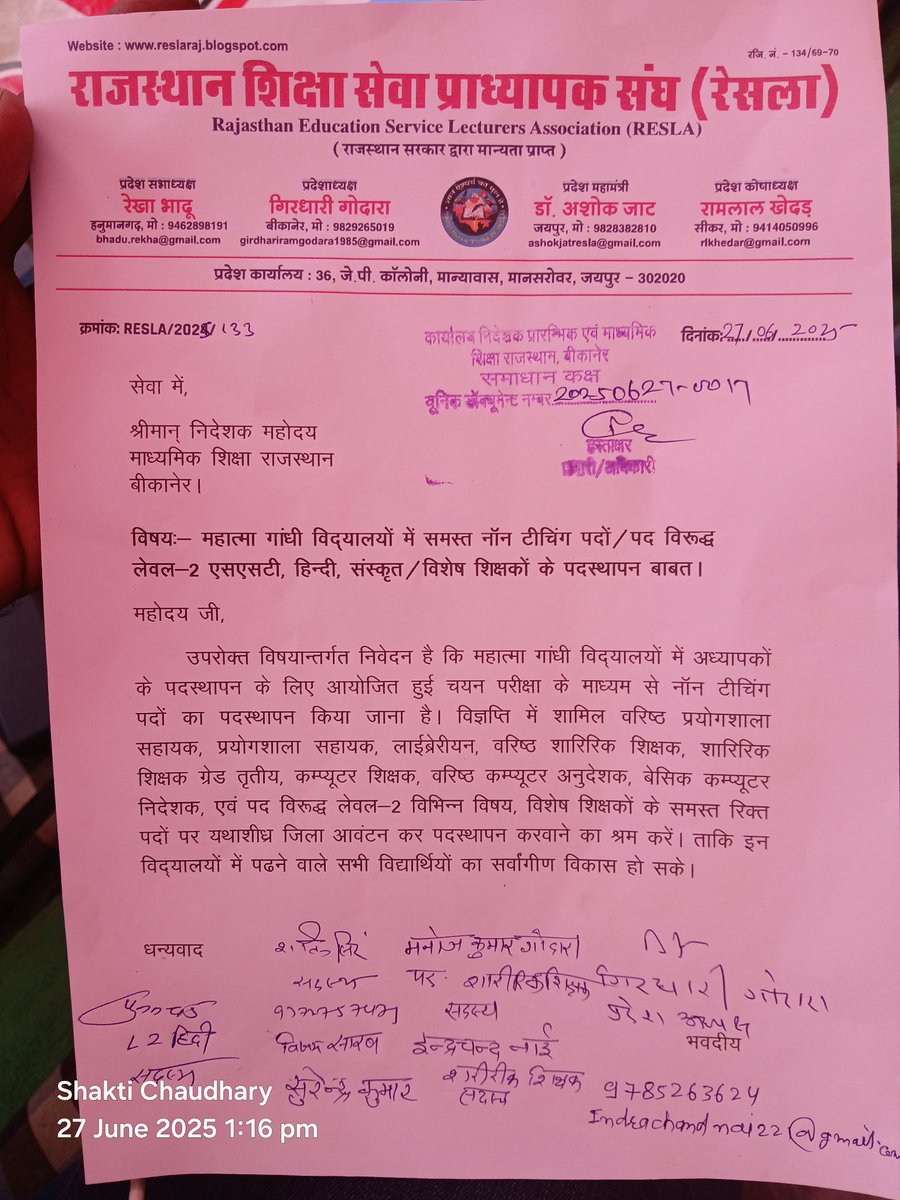 Website : www.reslaraj.blogspot.com
रजि. नं. - 134/69-70
राजस्थान शिक्षा सेवा प्राध्यापक संघ (रेसला)
Rajasthan Education Service Lecturers Association (RESLA)
( राजस्थान सरकार द्वारा मान्यता प्राप्त )
प्रदेश सभाध्यक्ष
रेखा भादू
हनुमानगढ़, मो : 9462898191
bhadu.rekha@gmail.com
प्रदेशाध्यक्ष
गिरधारी गोदारा
बीकानेर, मो : 9829265019
girdhariramgodara1985@gmail.com
प्रदेश महामंत्री
डॉ. अशोक जाट
जयपुर, मो : 9828382810
ashokjatresla@gmail.com
प्रदेश कोषाध्यक्ष
रामलाल खेदड़
सीकर, मो : 9414050996
rlkhedar@gmail.com
प्रदेश कार्यालय : 36, जे.पी. कॉलोनी, मान्यावास, मानसरोवर, जयपुर – 302020
क्रमांक: RESLA/2025/133
दिनांक: 27/06/2025
कार्यालय निदेशक प्रारम्भिक एवं माध्यमिक
शिक्षा राजस्थान, बीकानेर
समाधान कक्ष
यूनिक डॉक्यूमेन्ट नम्बर 20250627-0017
हस्ताक्षर
प्रभारी/अधिकारी
सेवा में,
श्रीमान् निदेशक महोदय
माध्यमिक शिक्षा राजस्थान
बीकानेर।
विषयः– महात्मा गांधी विद्यालयों में समस्त नॉन टीचिंग पदों/पद विरूद्ध
लेवल–2 एसएसटी, हिन्दी, संस्कृत/विशेष शिक्षकों के पदस्थापन बाबत।
महोदय जी,
उपरोक्त विषयान्तर्गत निवेदन है कि महात्मा गांधी विद्यालयों में अध्यापकों
के पदस्थापन के लिए आयोजित हुई चयन परीक्षा के माध्यम से नॉन टीचिंग
पदों का पदस्थापन किया जाना है। विज्ञप्ति में शामिल वरिष्ठ प्रयोगशाला
सहायक, प्रयोगशाला सहायक, लाईब्रेरीयन, वरिष्ठ शारिरिक शिक्षक, शारिरिक
शिक्षक ग्रेड तृतीय, कम्प्यूटर शिक्षक, वरिष्ठ कम्प्यूटर अनुदेशक, बेसिक कम्प्यूटर
निदेशक, एवं पद विरूद्ध लेवल–2 विभिन्न विषय, विशेष शिक्षकों के समस्त रिक्त
पदों पर यथाशीध्र जिला आवंटन कर पदस्थापन करवाने का श्रम करें। ताकि इन
विद्यालयों में पढने वाले सभी विद्यार्थियों का सर्वांगीण विकास हो सके।
धन्यवाद
सदस्य
L2 हिंदी
सदस्य
मनोज कुमार गोदारा
शारीरिक शिक्षक
सदस्य
गिरधारी गोदारा
प्रदेश अध्यक्ष
भवदीय
इन्द्रचन्द नाई
सुरेन्द्र कुमार
शारीरीक शिक्षक
सदस्य
9785263624
Indrachandnai22@gmail.com
Shakti Chaudhary
27 June 2025 1:16 pm